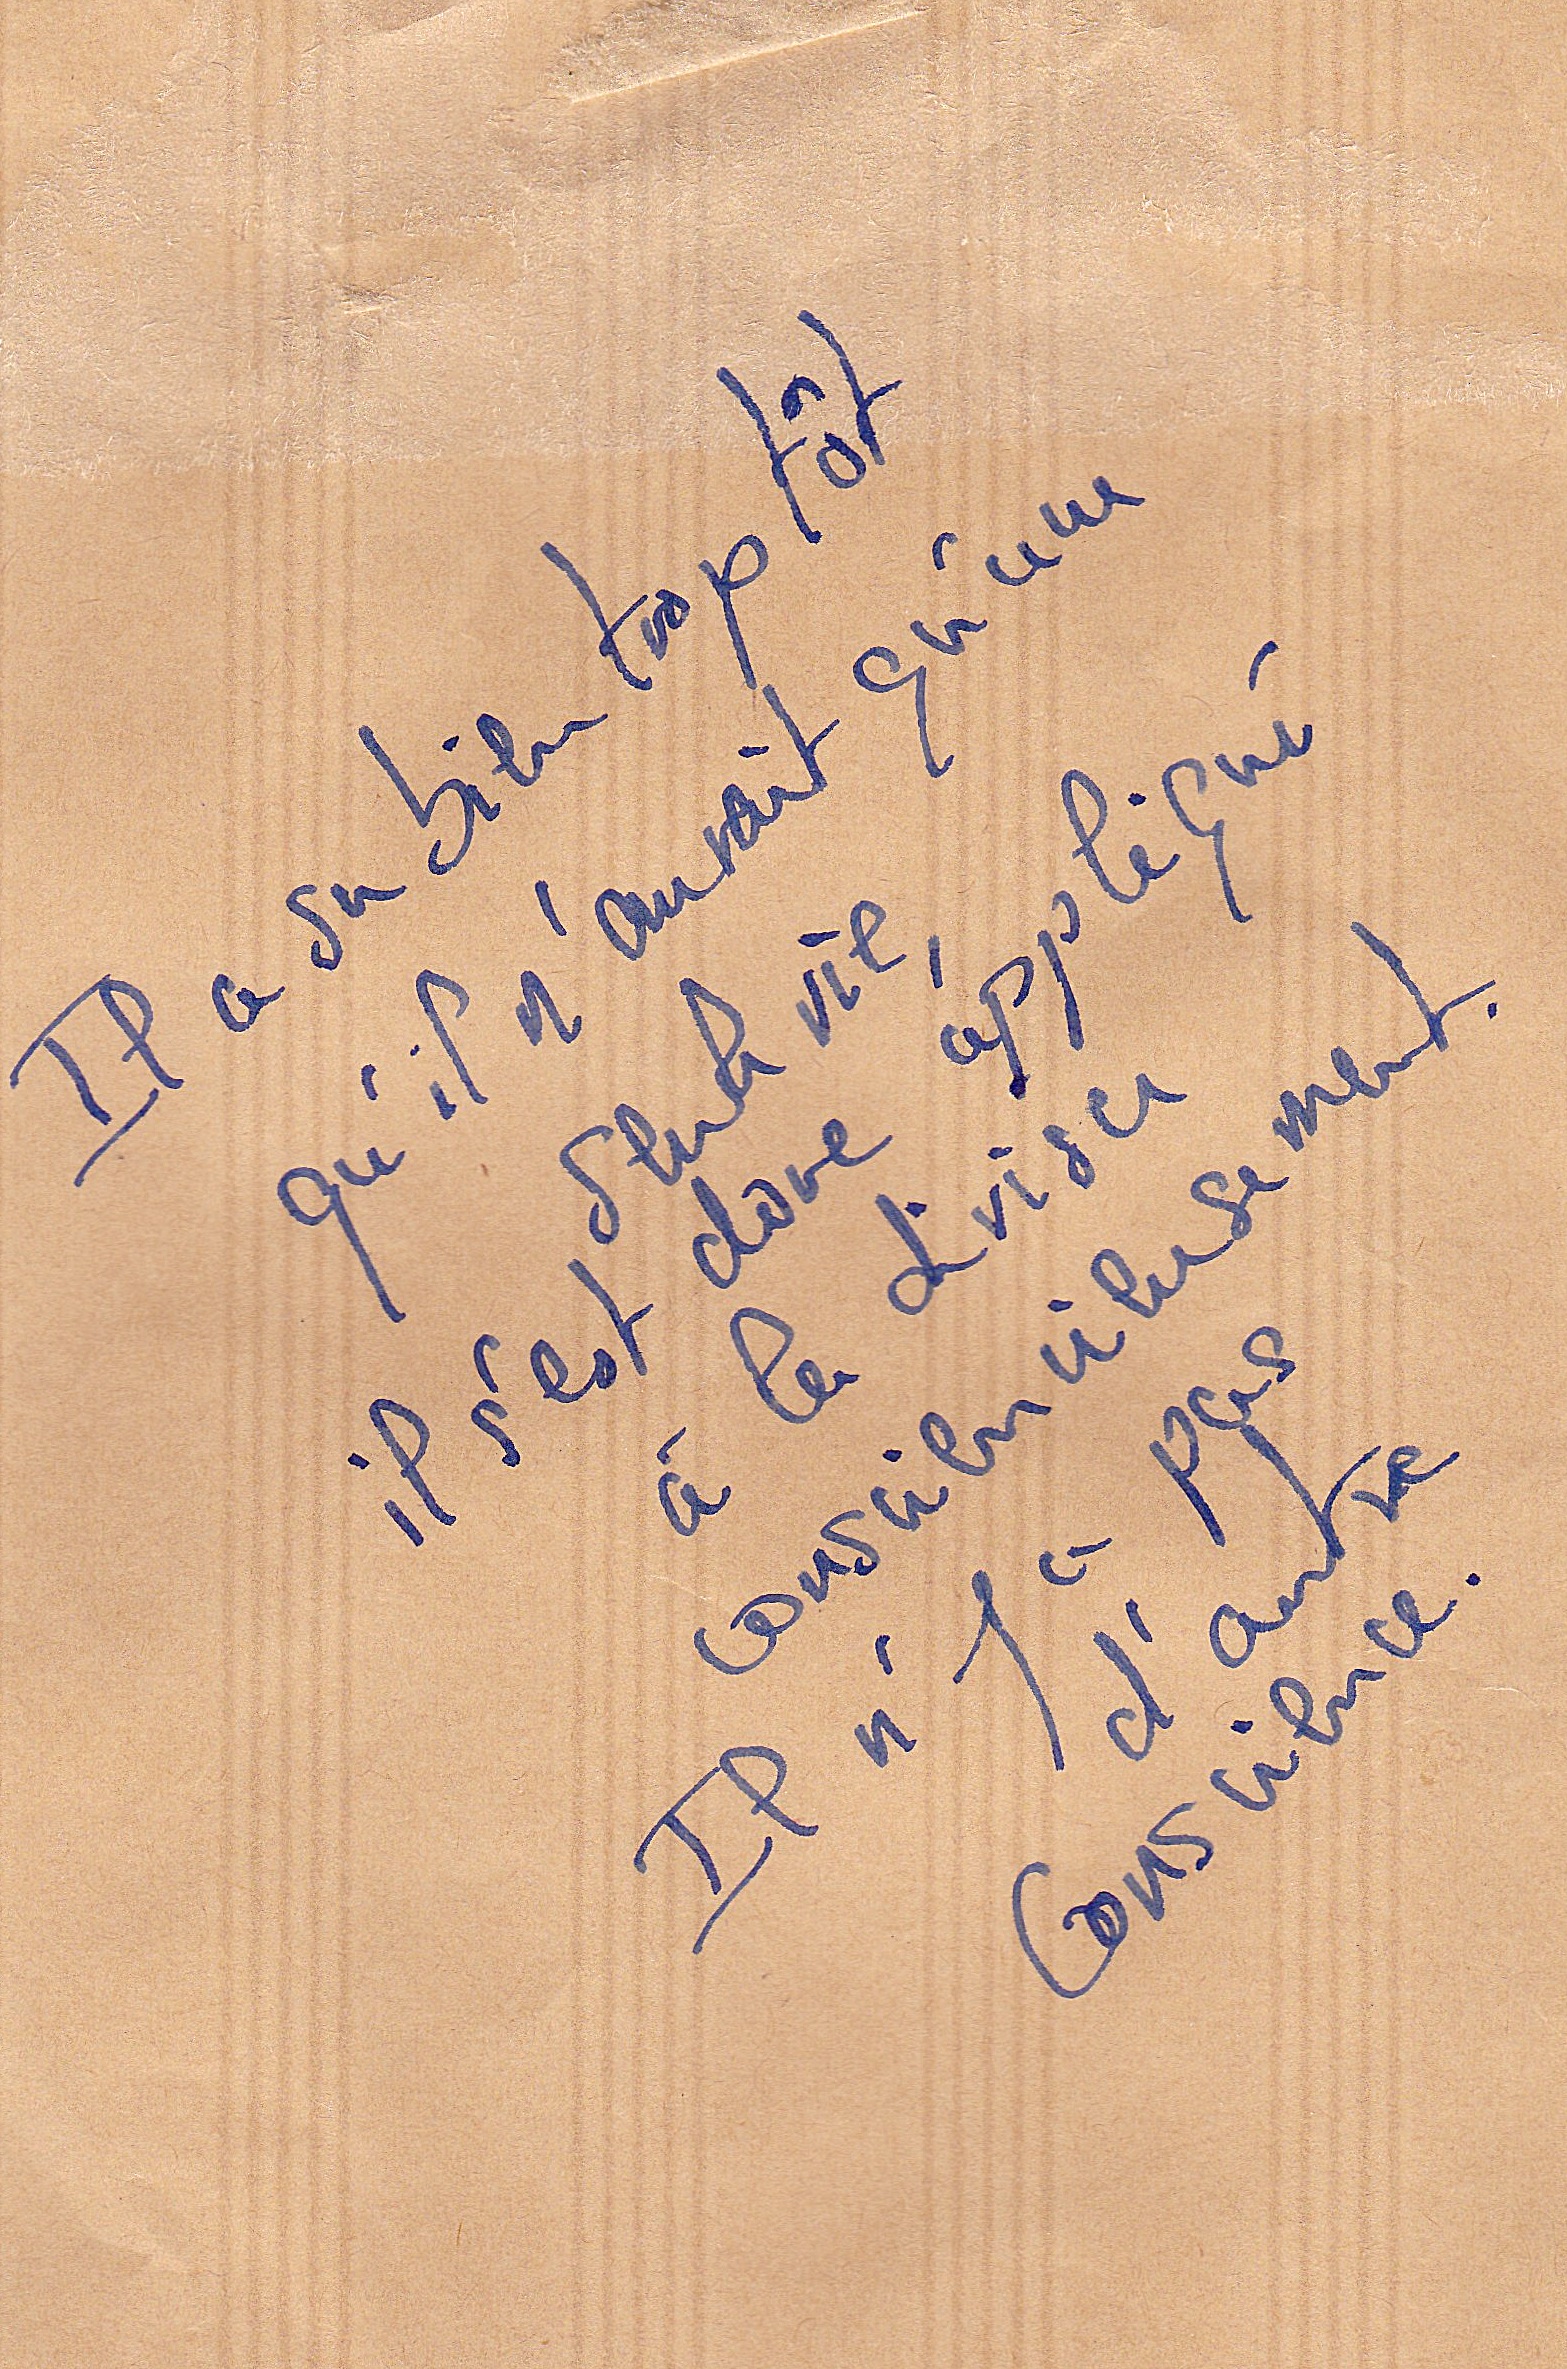 Il a su bien trop tôt
qu'il n'aurait qu'une
seule vie,
il s'est donc appliqué
à la diviser
consciencieusement.
Il n'y a pas
d'autre
Conscience.